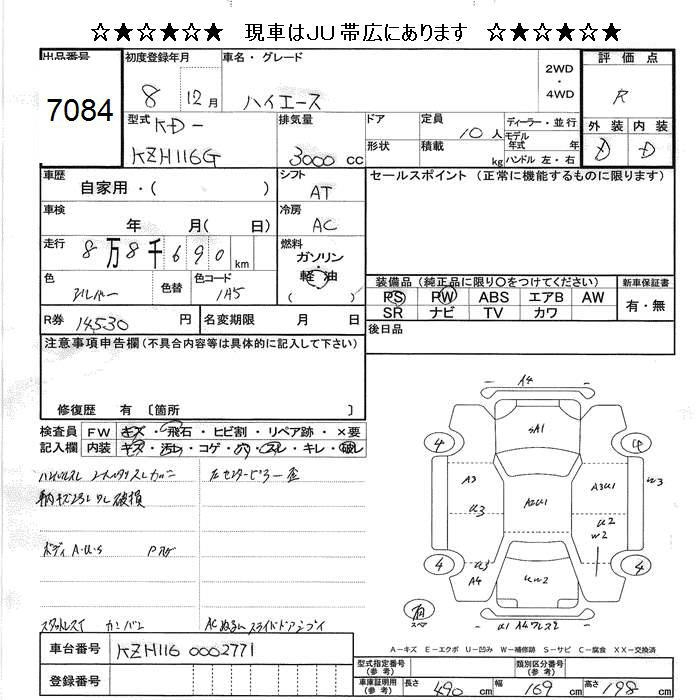 ☆★☆★☆★☆ 現車はJU帯広にあります ☆★☆★☆★☆
出品番号 初度登録年月 車名・グレード 2WD・4WD 評価点
7084 8 12月 ハイエース R
型式 KD- 排気量 ドア 定員 10人 ディーラー・並行 外装 内装
KZH116G 3000cc 形状 積載 kg モデル年式 年 D D
ハンドル 左・右
車歴 自家用・( ) シフト AT セールスポイント (正常に機能するものに限ります)
車検 年 月( 日) 冷房 AC
走行 8万8千690km 燃料 ガソリン・軽油 ( )
色 シルバー 色替 色コード 1A5
装備品 (純正品に限り○をつけてください) 新車保証書
PS PW ABS エアB AW 有・無
SR ナビ TV カワ
R券 14530円 名変期限 月 日 後日品
注意事項申告欄(不具合内容等は具体的に記入して下さい)
修復歴 有 〔箇所 〕
検査員 FW キズ・飛石・ヒビ割・リペア跡・×要
記入欄 内装 キズ・汚レ・コゲ・穴・スレ・キレ・破レ
左センターピラー歪
ボディ A・U・S
スタットレス カンバン
AC スライドドア
A4
SA1
4 4
A3 A2U1 A3U1 W3
U3 U2
W2
4 U3 4
A4 UW2
有
スペア
A-キズ E-エクボ U-凹み W-補修跡 S-サビ C-腐食 XX-交換済
車台番号 KZH116 0002771
登録番号
型式指定番号(参考) 類別区分番号(参考)
車庫証明用(参考) 長さ 490cm 幅 169cm 高さ 198cm